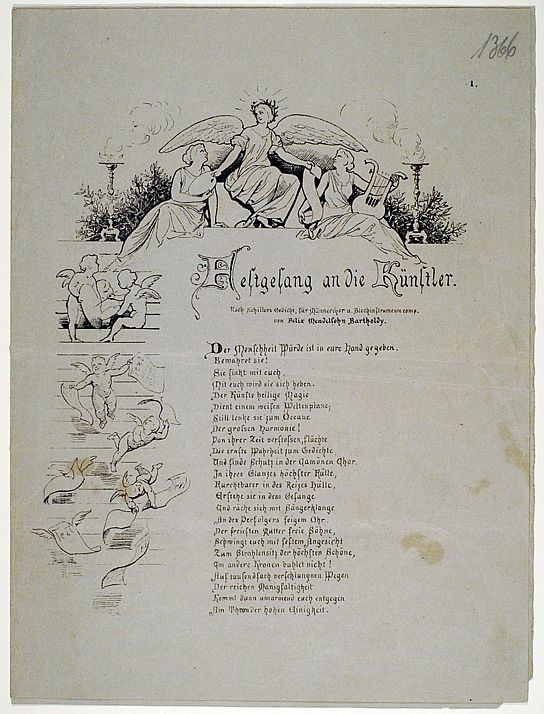 1366
1.
Festgesang an die Künstler.
Nach Schillers Gedicht, für Männerchor u. Blechinstrumente comp.
von Felix Mendelsohn Bartholdy.
Der Menschheit Würde ist in eure Hand gegeben.
Bewahret sie!
Sie sinkt mit euch,
Mit euch wird sie sich heben.
Der Künste heilige Magie
Dient einem weisen Weltenplane;
Still lenke sie zum Oceane
Der grossen Harmonie!
Von ihrer Zeit verstossen, flüchte
Die ernste Wahrheit zum Gedichte
Und finde Schutz in der Camönen Chor.
In ihres Glanzes höchster Fülle,
Furchtbarer in des Reizes Hülle,
Erstehe sie in dem Gesange
Und räche sich mit Sängerklange
An des Verfolgers feigem Ohr.
Der freiesten Mutter freie Söhne,
Schwingt euch mit festem Angesicht
Zum Strahlensitz der höchsten Schöne,
Um andere Kronen buhlet nicht!
Auf tausendfach verschlungnen Wegen
Der reichen Manigfaltigkeit
Kommt dann umarmend euch entgegen
Am Thron der hohen Einigkeit.